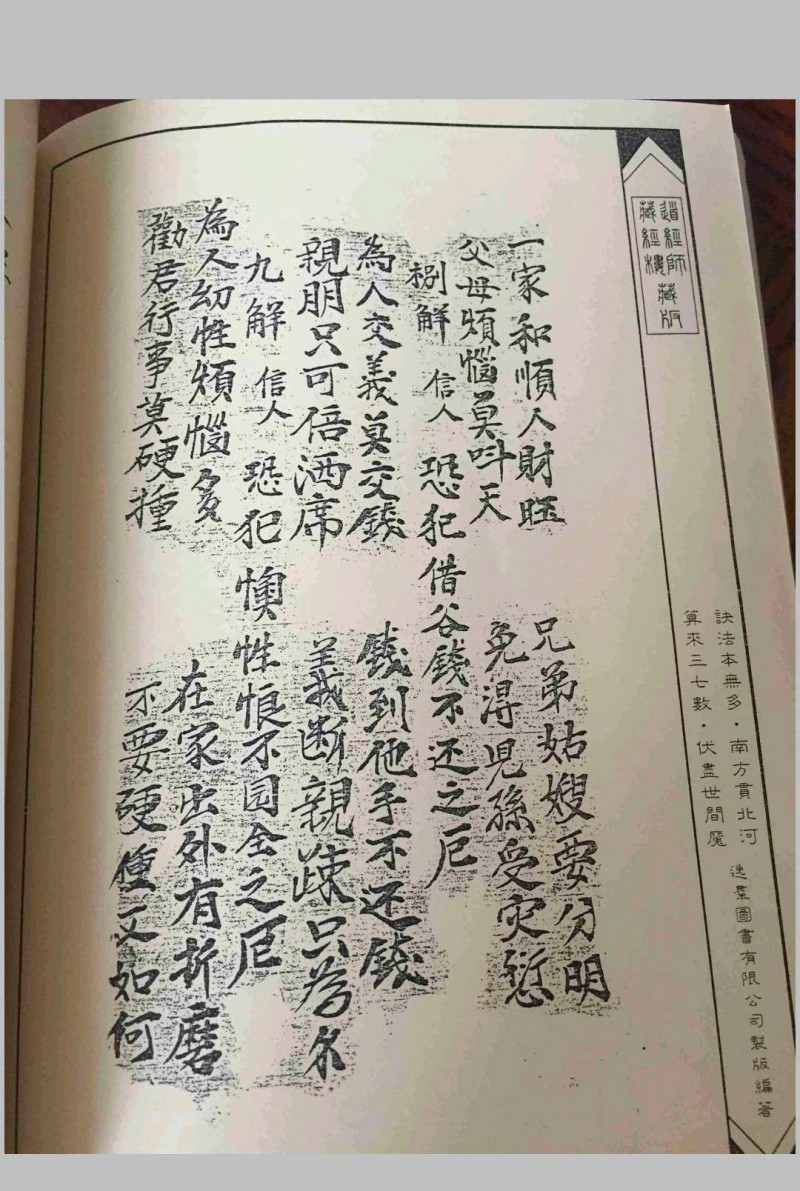 道經師藏版
藏經樓
訣法本無多・南方貫北河
算來三七數・伏盡世間魔
逸羣圖書有限公司製版編著
一家和順人財旺 兄弟姑嫂要分明
父母煩惱莫呌天 免淂児孫受灾愆
捌解 信人 恐犯借谷錢不还之厄
為人交義莫交錢 錢到他手不还錢
親朋只可倍酒席 義断親踈只為尓
九解 信人 恐犯懊性恨不园全之厄
為人幼性煩惱多 在家出外有折磨
勸君行事莫硬撞 不要硬撞又如何